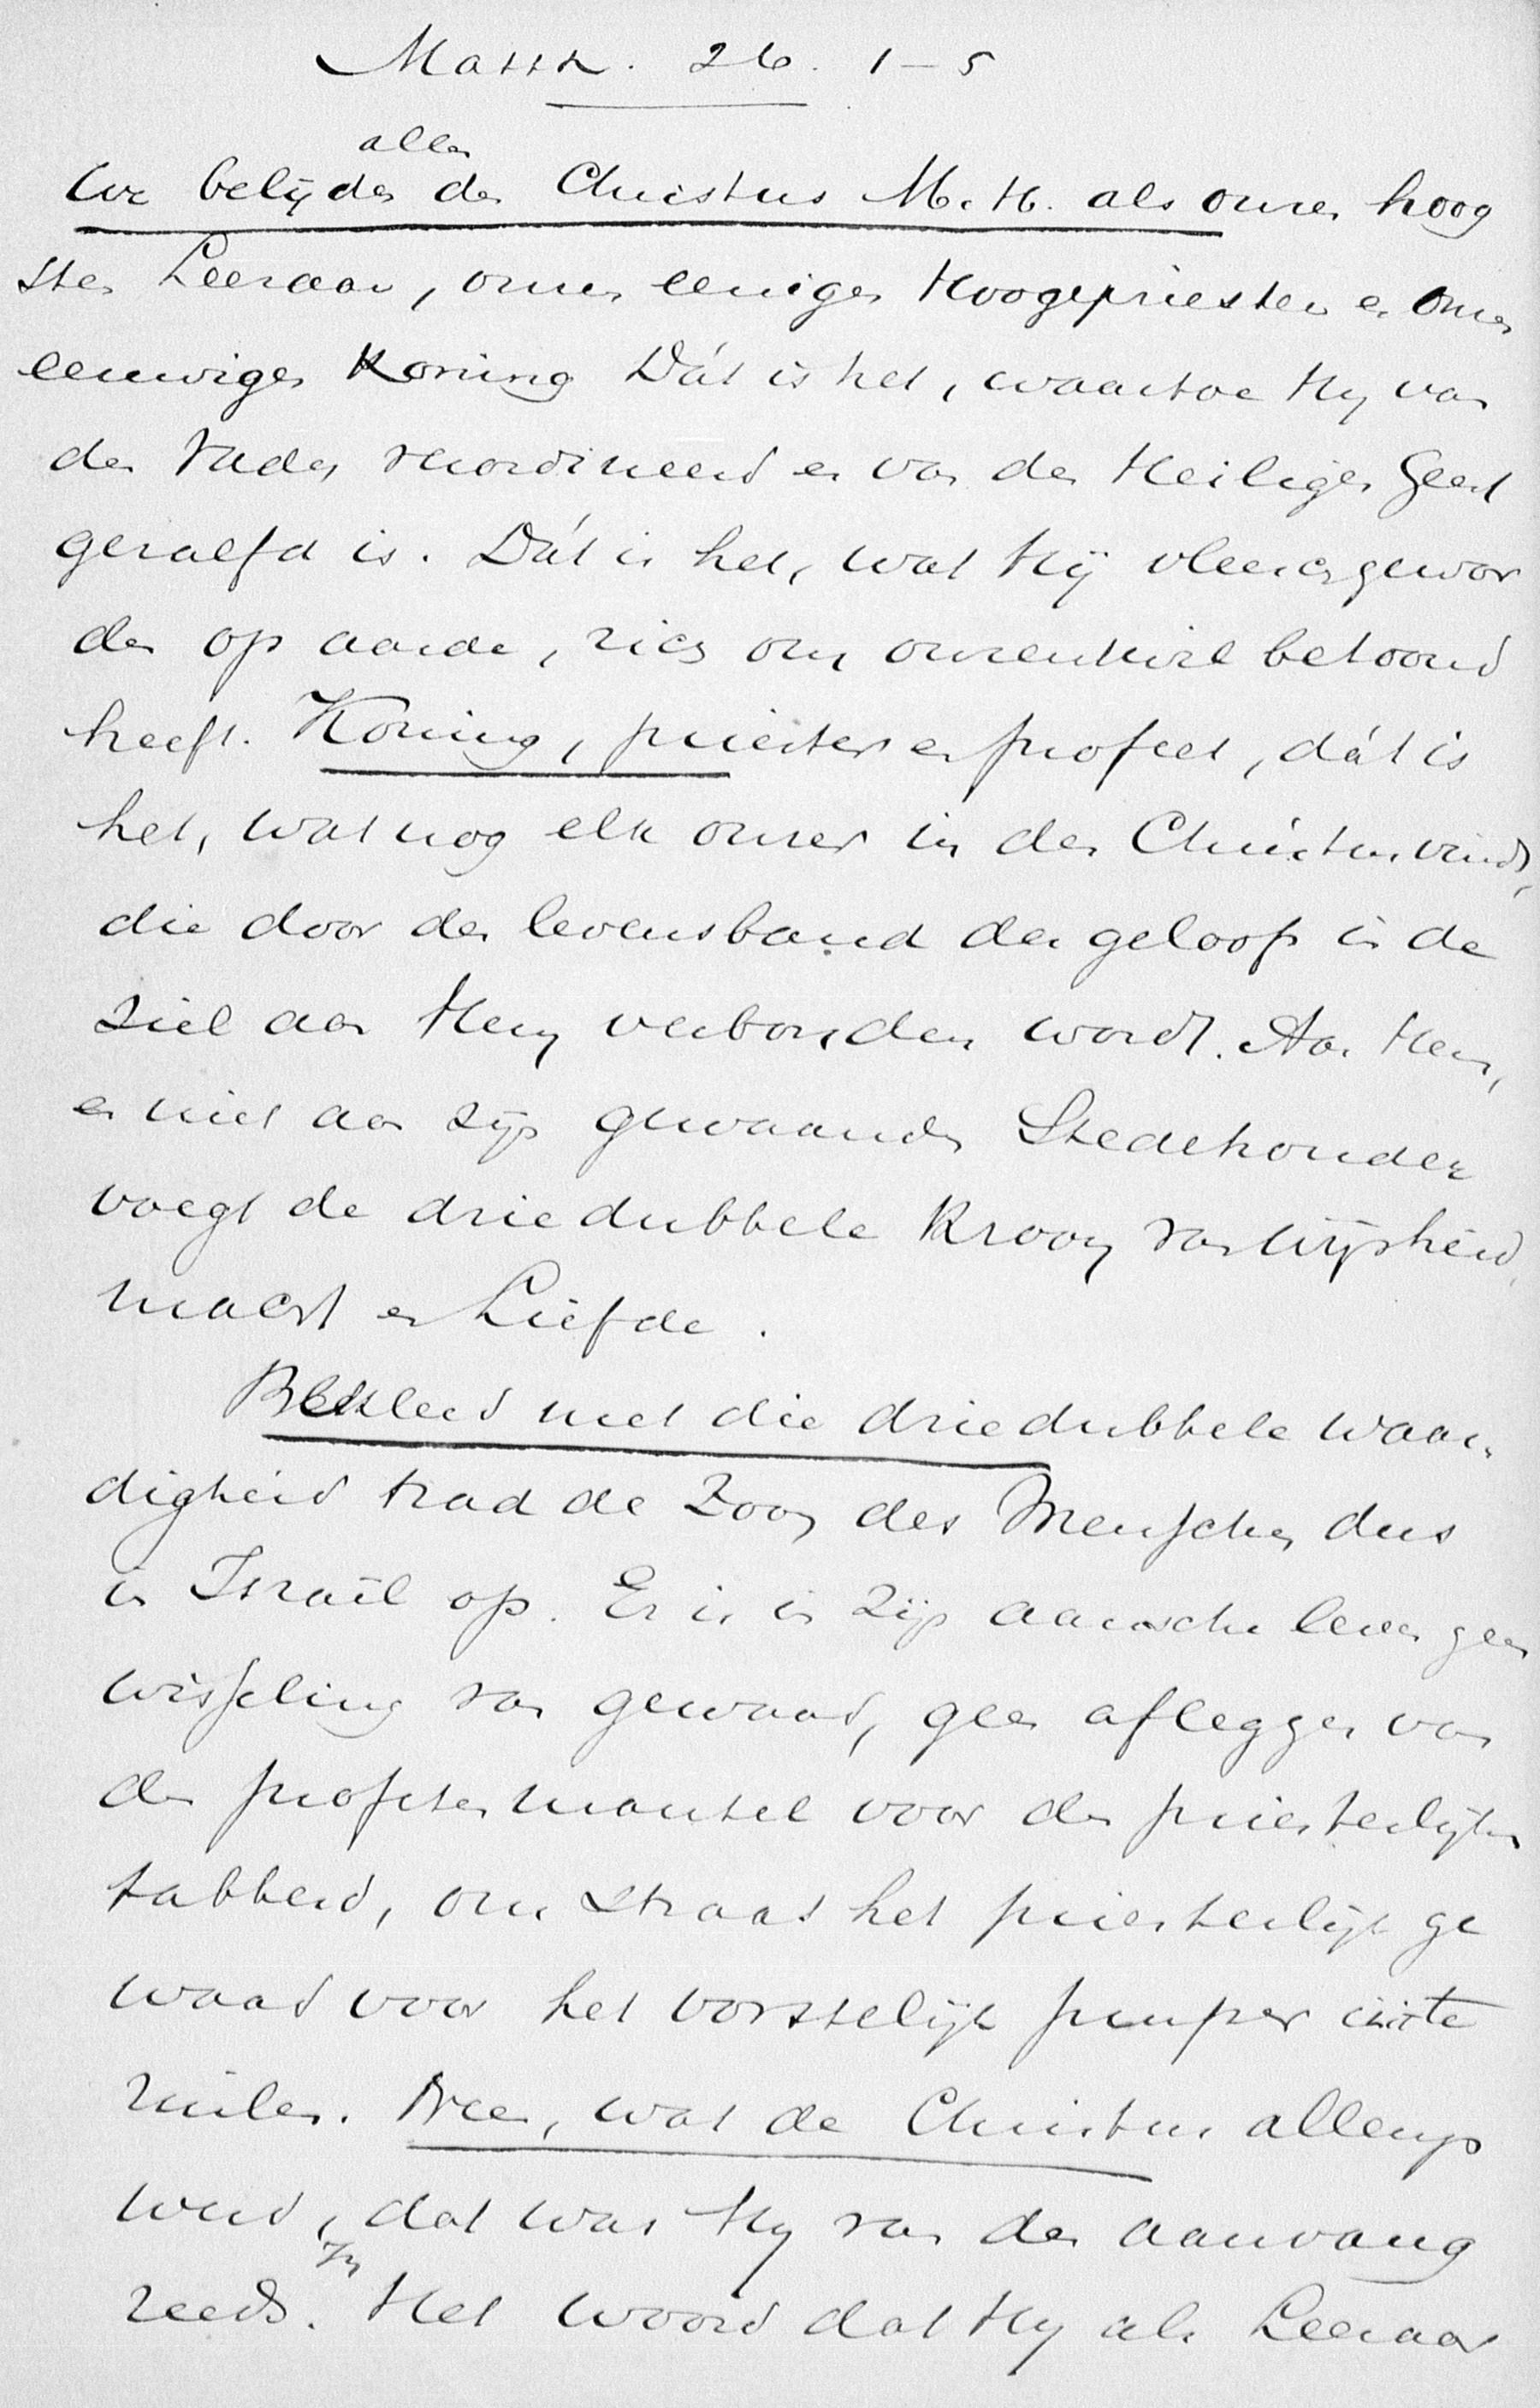 Matth. 26. 1-5
allen
We belijden den Christus M. H. als onzen hoog
sten Leeraar, onzen eenigen Hoogepriester en onzen
eeuwigen Koning Dát is het, waartoe Hy van
den Vader verordineerd en van den Heiligen Geest
gezalfd is. Dát is het, wat Hij vleeschgewor
den op aarde, zich om onzentwil betoond
heeft. Koning, priester en profeet, dát is
het, wat nog elk onzer in den Christus vindt,
die door den levensband des geloofs in de
ziel aan Hem verbonden wordt. Aan Hem,
en niet aan zijn gewaanden Stedehouder
voegt de driedubbele Kroon van wijsheid,
macht en Liefde.
Bekleed met die driedubbele waar-
digheid trad de Zoon des Menschen dus
in Israël op. Er is in Zijn aardsche leven geen
wisseling van gewaad, geen afleggen van
den profetenmantel voor den priesterlijken
tabberd, om straks het priesterlijk ge
waad voor het vorstelijk purper in te
ruilen. Neen, wat de Christus allengs
werd, dat was Hy van den aanvang
reeds. In Het woord dat Hy als Leeraar